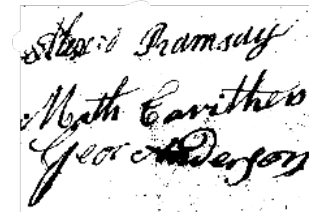 Alexr Ramsay
Math Carithers
Geor Anderson